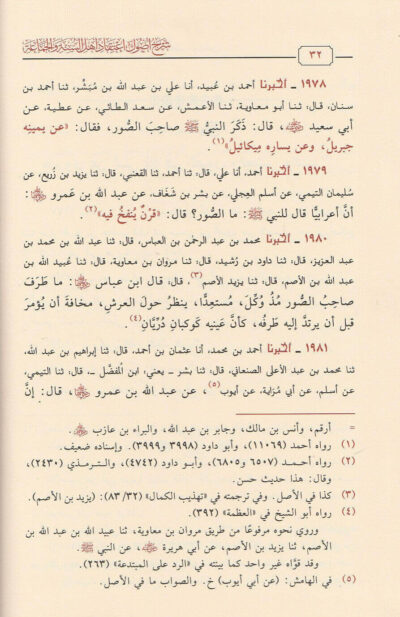 شرح أصول اعتقاد أهل السنة والجماعة
٣٢
١٩٧٨ ـ أخبرنا أحمد بن عُبيد، أنا علي بن عبد الله بن مُبَشِّر، ثنا أحمد بن
سنان، قال: ثنا أبو معاوية، ثنا الأعمش، عن سعد الطائي، عن عطية، عن
أبي سعيد ﷺ، قال: ذَكَرَ النبيُّ ﷺ صاحِبَ الصُّور، فقال: «عن يمينِه
جبريلُ، وعن يسارِه مِيكائيلُ»(١).
١٩٧٩ ـ أخبرنا أحمد، أنا علي، قال: ثنا أحمد، ثنا القعنبي، قال: ثنا يزيد بن زُريع، عن
سُليمان التيمي، عن أسلم العِجلي، عن بشر بن شَغَاف، عن عبد الله بن عَمرو ﷺ:
أنَّ أعرابيًّا قال للنبي ﷺ: ما الصُّور؟ قال: «قَرْنٌ يُنفَخُ فيه»(٢).
١٩٨٠ ـ أخبرنا محمد بن عبد الرحمٰن بن العباس، قال: ثنا عبد الله بن محمد بن
عبد العزيز، قال: ثنا داود بن رُشيد، قال: ثنا مروان بن معاوية، قال: ثنا عُبيد الله بن
عبد الله بن الأصم، قال: ثنا يزيد الأصم(٣)، قال: قال ابن عباس ﷺ: ما طَرَفَ
صاحِبُ الصُّور مُذْ وُكِّلَ، مُستعِدًّا، ينظُرُ حولَ العرشِ، مخافةَ أن يُؤمرَ
قبل أن يرتدَّ إليه طَرفُه، كأنَّ عَينيه كَوكبانِ دُرِّيَّانِ(٤).
١٩٨١ ـ أخبرنا أحمد بن محمد، أنا عثمان بن أحمد، قال: ثنا إبراهيم بن عبد الله،
ثنا محمد بن عبد الأعلى الصنعاني، قال: ثنا بشر ـ يعني، ابن المُفضَّل ـ، قال: ثنا التيمي،
عن أسلم، عن أبي مُرَاية، عن أيوب(٥)، عن عبد الله بن عمرو ﷺ، قال: إنَّ
= أرقم، وأنس بن مالك، وجابر بن عبد الله، والبراء بن عازب ﷺ.
(١) رواه أحمد (١١٠٦٩)، وأبو داود (٣٩٩٨ و٣٩٩٩). وإسناده ضعيف.
(٢) رواه أحمد (٦٥٠٧ و٦٨٠٥)، وأبو داود (٤٧٤٢)، والترمذي (٢٤٣٠)،
وقال: هذا حديث حسن.
(٣) كذا في الأصل. وفي ترجمته في «تهذيب الكمال» (٨٣/٣٢): (يزيد بن الأصم).
(٤) رواه أبو الشيخ في «العظمة» (٣٩٢).
وروي نحوه مرفوعًا من طريق مروان بن معاوية، ثنا عبيد الله بن عبد الله بن
الأصم، ثنا يزيد بن الأصم، عن أبي هريرة ﷺ، عن النبي ﷺ.
وقد قوَّاه غير واحد كما بينته في «الرد على المبتدعة» (٢٦٣).
(٥) في الهامش: (عن أبي أيوب) خ. والصواب ما في الأصل.